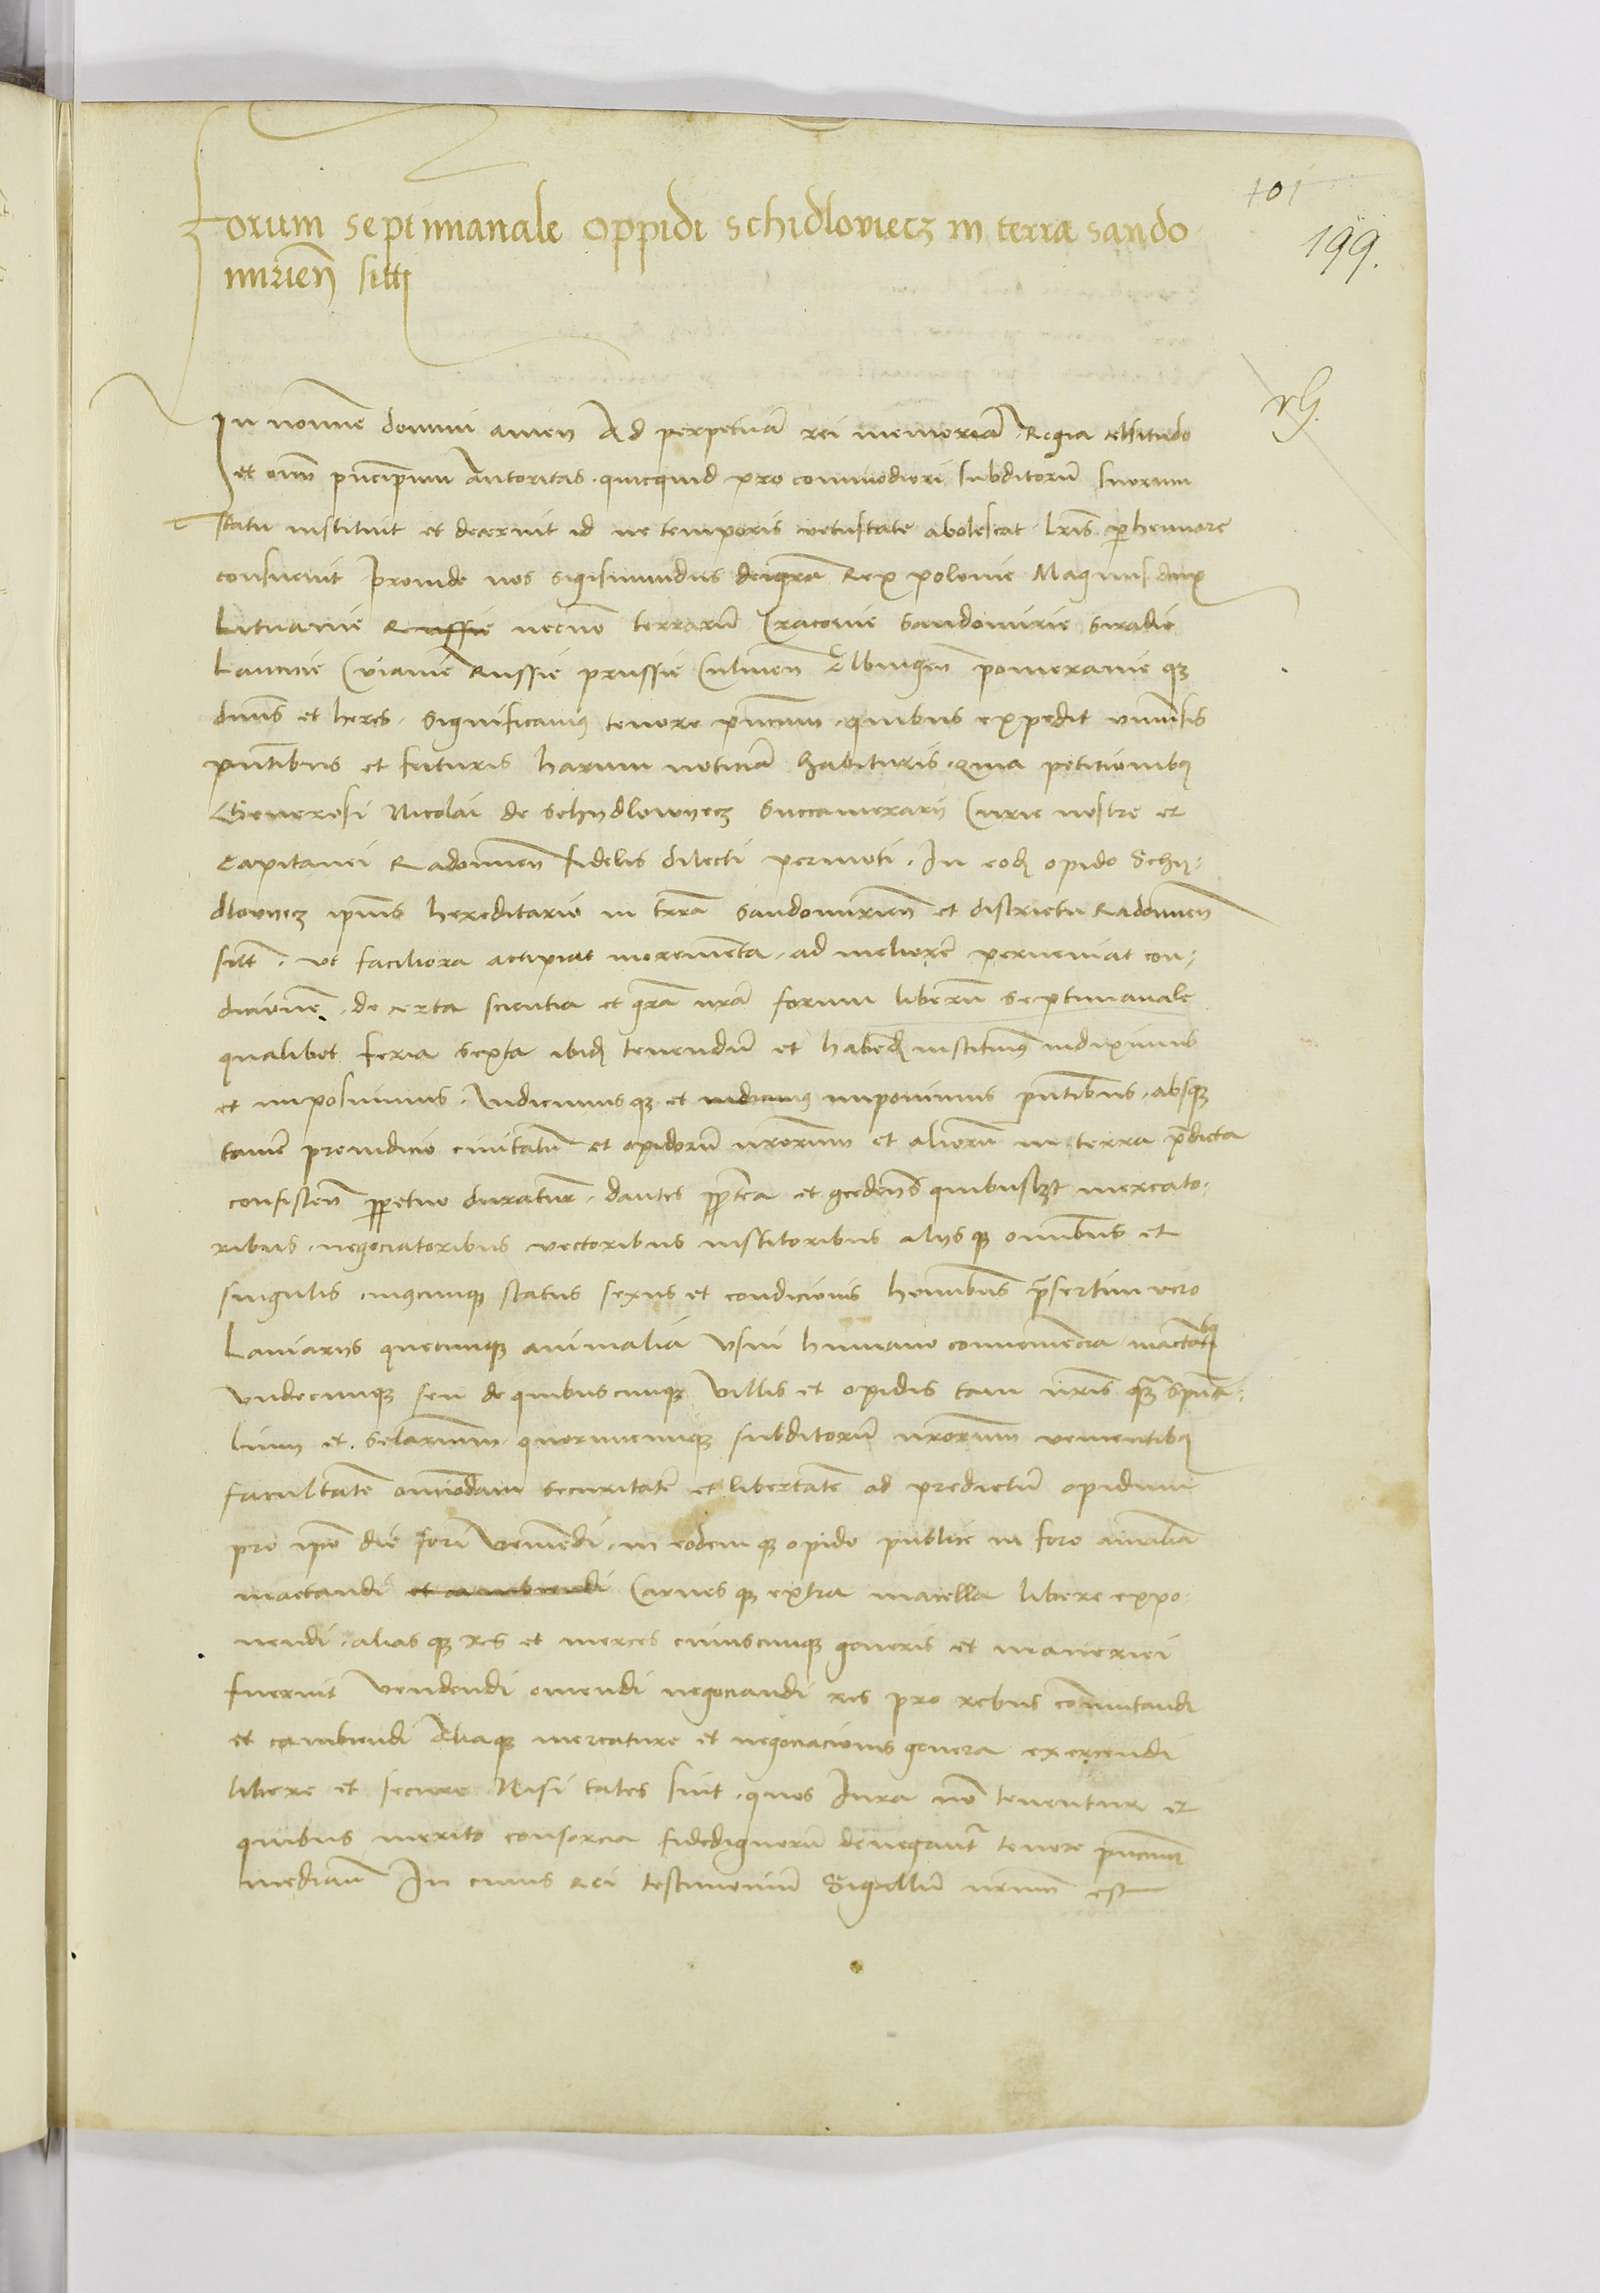 101
199.
Forum septimanale oppidi Schidloviecz in terra sando
mirien̄ sitti
rG.
In nomine domini amen Ad perpetuā rei memoriā. Regia celsitudo
et oīm pn̄cipum Autoritas. quicquid pro commodiori subditorū suorum
statu instituit et decernit id ne temporis vetustate abolescat. lr̄is perhennare
consuevit Proinde nos Sigismundus dei grā Rex polonie Magnus dux
Lituanie Russie necno terrarū Cracovie Sandomirie Siradie
Lancicie Cuiavie Russie prussie Culmen̄ Elbingen̄ pomeranie qz
dn̄us et heres. Significamus tenore pn̄cium quibus expedit univ̄sis
pn̄tibus et futuris harum noticiā habituris. Quia petitionibus
Generosi Nicolai de Schydlowyecz Succamerarij Curie nostre et
Capitanei Radomien̄ fidelis dilecti permoti. In eodē opido Schy-
dlovyecz ip̄ius hereditario in terrā Sandomirien̄ et districtu Radomien̄
sitt. ut faciliora accipiat incrementa. ad meliorē perveniat con-
dicionē. de certa scientia et grā nrā forum liberū septimanale
qualibet feria sexta ibidē tenendū et habend̄ instituimus indiximus
et imposuimus. Indicimusqz et indicimus imponimus pn̄tibus. absqz
tamē preiudicio civitatū et opidorū nrorum et aliorū in terra p̄dicta
consisten̄ p̄petuo duraturū. dantes p̄pterea et ꝯcedentes quibuslibet mercato-
ribus. negociatoribus vectoribus institoribus alijsqz omnibus et
singulis cuiuscunqz status sexus et condicionis hominibus p̄sertim vero
Laniarijs quecunqz animalia usui humano conveniencia mactantibus
undecunqz seu de quibuscunqz villis et opidis tam nr̄is qz sp̄ua-
lium et secularium quorumcunqz subditorū nrorum venientibus
facultatē om̄imodam securitatē et libertatē ad predictū opidum
pro ip̄o die fori veniendi. in eodemqz opido publice in foro animalia
mactandi et cambiendi Carnesqz extra macella libere expo-
nendi. aliasqz res et merces cuiuscunqz generis et maneriei
fuerint vendendi emendi negociandi res pro rebus cōmutandi
et cambiendi Aliaqz mercature et negociacionis genera exercendi
libere et secure Nisi tales sint. quos Iura nō tuentur et
quibus merito consorcia fidedignorū denegantur tenore pn̄cium
mediante In cuius Rei testimoniū Sigillū nrum est